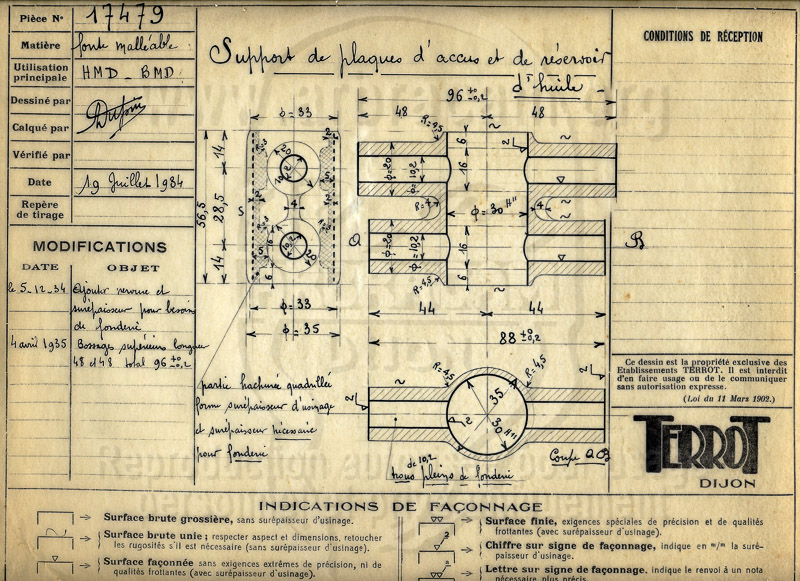 Pièce Nº 17479
Matière fonte malléable
Utilisation principale HMD - BMD
Dessiné par
Calqué par
Vérifié par
Date 19 Juillet 1934
Repère de tirage
MODIFICATIONS
DATE OBJET
le 5-12-34 Ajouter nervure et
surépaisseur pour besoin
de fonderie
4 avril 1935 Bossages supérieurs longueur
48 et 48 total 96 +0 -0,2
Support de plaques d'accus et de réservoir
d'huile
96 +0 -0,2
48 48
ϕ = 33
R=4,5
2 2
14
28,5
14
56,5
S
20
10,2
4
5
6
10,2
20
ϕ=20
ϕ=10,2
6
16
R=4
ϕ=30 H11
4
A B
ϕ=20
ϕ=10,2
16
6
R=4,5
ϕ=33
ϕ=35
44 44
88 +0 -0,2
R=4,5 R=4,5
35
30 H11
2 2
partie hachurée quadrillée
forme surépaisseur d'usinage
et surépaisseur nécessaire
pour fonderie
de 10,2
trous pleins de fonderie
Coupe AB
CONDITIONS DE RÉCEPTION
Ce dessin est la propriété exclusive des
Etablissements TERROT. Il est interdit
d'en faire usage ou de le communiquer
sans autorisation expresse.
(Loi du 11 Mars 1902.)
TERROT
DIJON
INDICATIONS DE FAÇONNAGE
Surface brute grossière, sans surépaisseur d'usinage.
Surface brute unie ; respecter aspect et dimensions, retoucher
les rugosités s'il est nécessaire (sans surépaisseur d'usinage).
Surface façonnée sans exigences extrêmes de précision, ni de
qualités frottantes (avec surépaisseur d'usinage).
Surface finie, exigences spéciales de précision et de qualités
frottantes (avec surépaisseur d'usinage).
3
Chiffre sur signe de façonnage, indique en m/m la suré-
paisseur d'usinage.
a
Lettre sur signe de façonnage, indique le renvoi à un nota
nécessaire plus précis.